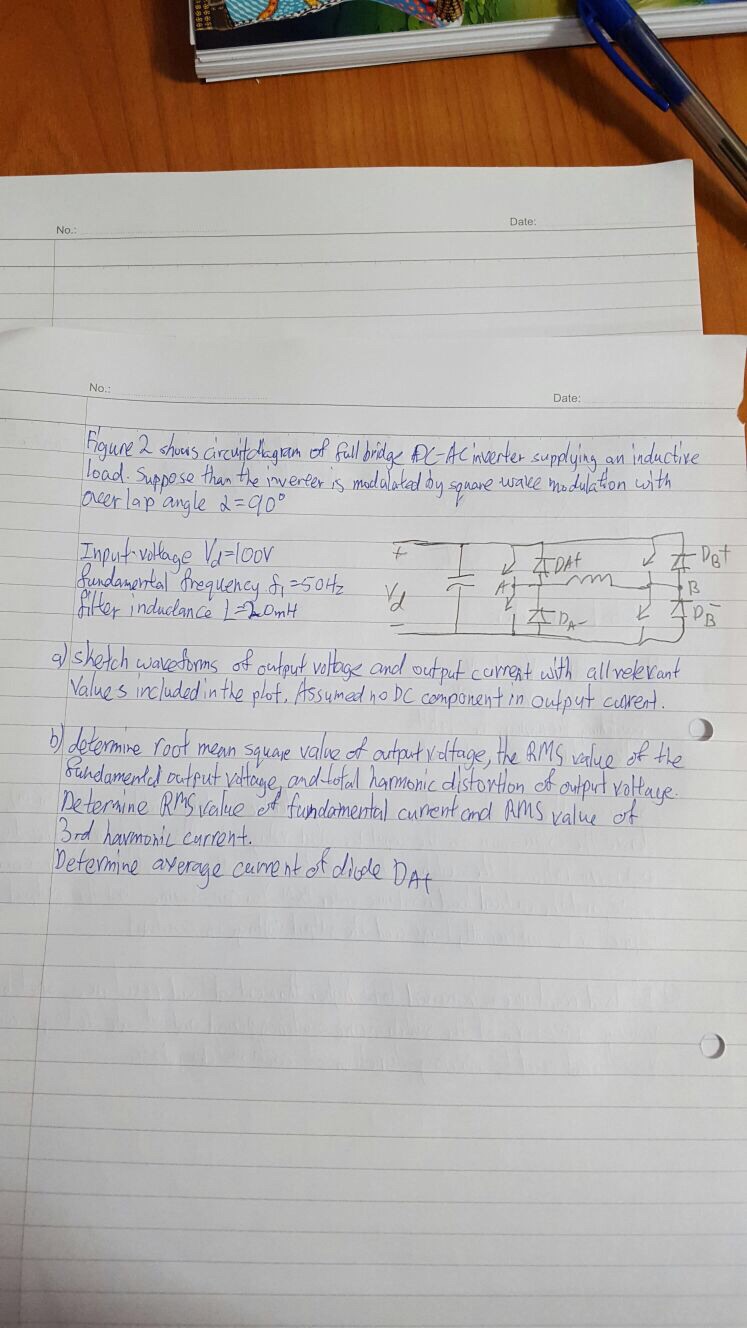 No.:
Date:
No.:
Date:
Figure 2 shows circuit diagram of full bridge DC-AC inverter supplying an inductive
load. Suppose than the inverter is modulated by square wave modulation with
overlap angle α=90°
Input-voltage Vd=100V
fundamental frequency f1=50Hz
filter inductance L=20mH
+
Vd
-
A
DA+
DA-
DB+
B
DB-
a) sketch waveforms of output voltage and output current with all relevant
Values included in the plot, Assumed no DC component in output current.
b) determine root mean square value of output voltage, the RMS value of the
fundamental output voltage, and total harmonic distortion of output voltage.
Determine RMS value of fundamental current and RMS value of
3rd harmonic current.
Determine average current of diode DA+